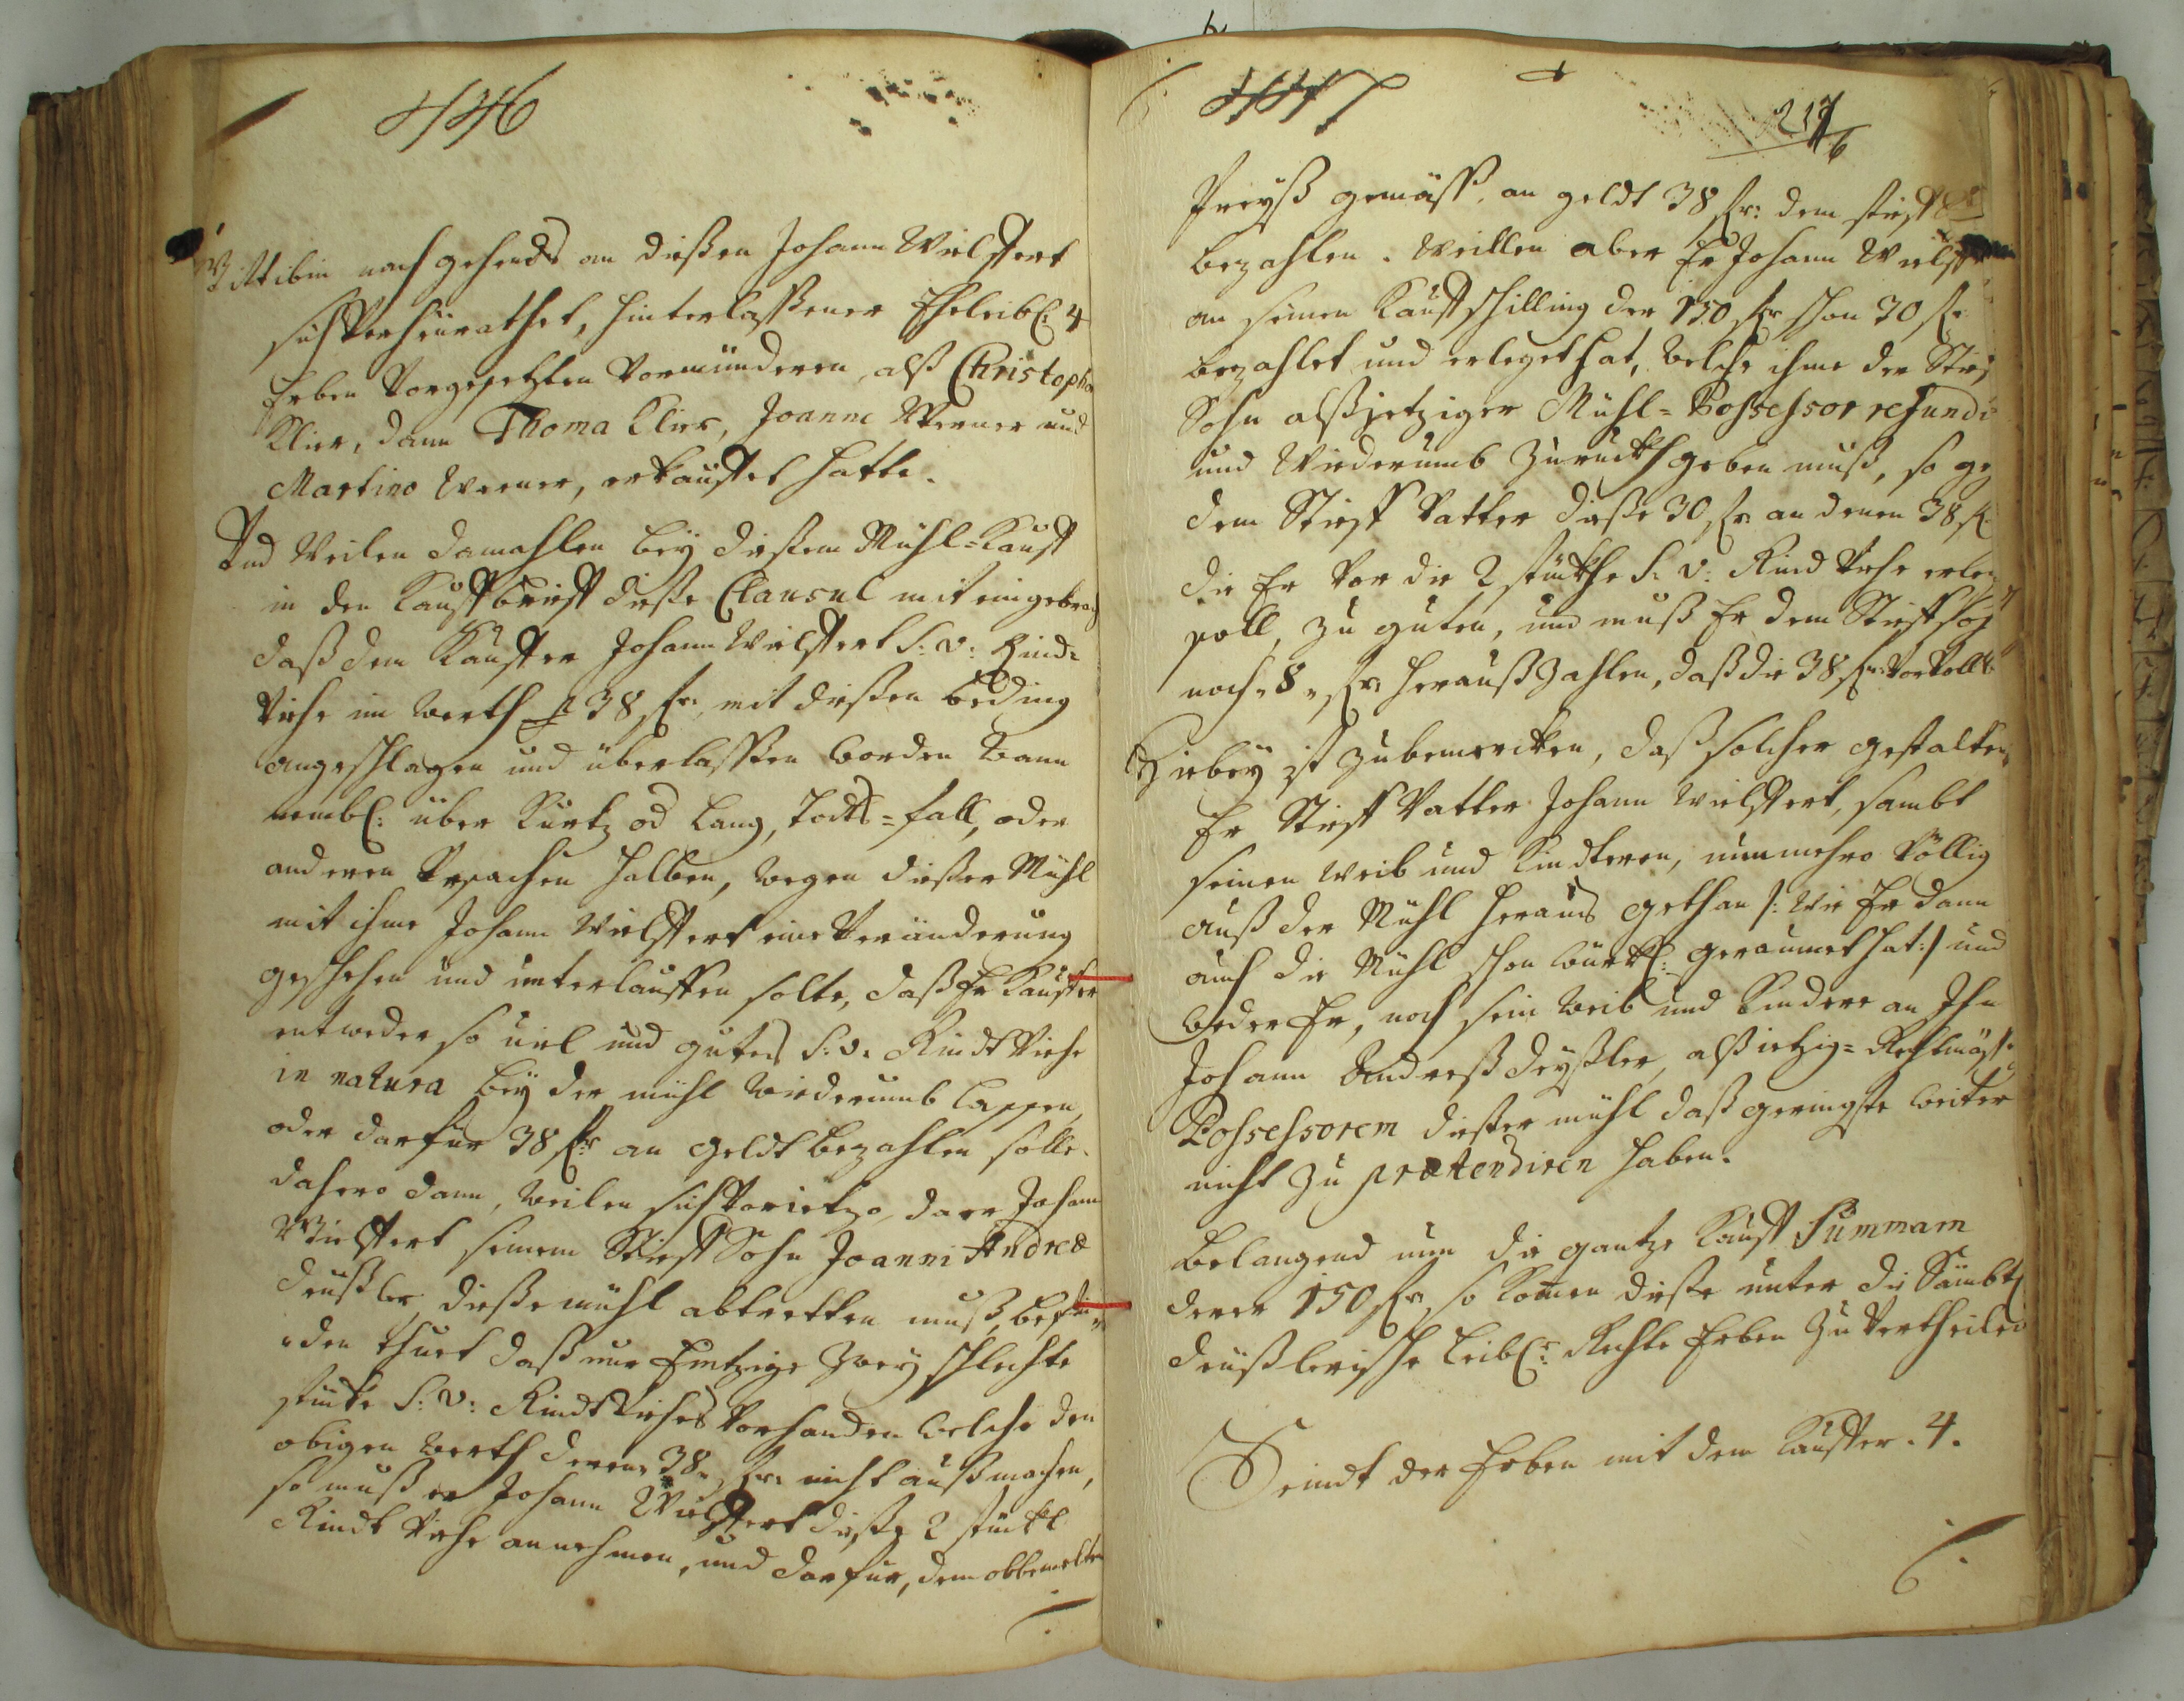 446
Wittibin nachgehends an dießen Johann Wielffert
sich verheurathet, hinterlaßener Eheleibl: 4
Erben Vorgesetzten Vormünderen, alß Christoph
Klier, dann Thoma Klier, Joanne Werner und
Martino Werner, erkauffet hatte.
Und Weilen damahlen bey dießem Mühl=Kauff
in den Kauffbrieff dieße Clausul mit eingebrach
daß dem Kauffer Johann Wielffert S: v: Rind=
Viehe im Werth p 38 ßr, mit dießen beding
angeschlagen und überlaßßen worden Wann
nembl: über Kurtz od lang, Todts=fall, oder
anderen Ursachen halben, wegen dießer Mühl
mit ihme Johann Wielffert eine Veränderung
geschehen und unterlauffen solte, daß Er Kauffer
entweder so viel und gutes S: v: Rindt Viehe
in natura bey der mühl Wiederumb laßßen,
oder darfür 38 ßr an geldt bezahlen solle.
dahero dann, weilen sich vorietzo, da er Johann
Wielffert seinem Stieff Sohn Joanni Andreæ
Deußler, dieße mühl abtretten muß, befin=
=den thuet daß nur Eintzige zwey schlechte
stücke S: v: Rindt Viehes Vorhanden welche den
obigen Werth deren 38 ßr: nicht außmachen,
so muß er Johann Wielffert dieße 2 stückl
Rindt Viehe annehmen, und darfür, dem obbemelten
447
217
6
Preyß gemäß, an geldt 38 ßr: dem stieff
bezahlen. Weillen aber Er Johann Wielff
an seinen Kauffschilling der 150 ßr schon 30 ßr
bezahlet und erleget hat, welche ihme der Stie
Sohn alß jetziger Mühl=Possessor refundi
und Wiederumb zuruckh geben muß, so ge
dem Stieff Vatter dieße 30 ßr an denen 38 ß
die Er Vor die 2 stückhe S: v: Rind Viehe erleg
soll, zu guten, und muß Er dem Stieffsoh
noch 8 ßr heraußzahlen, daß die 38 ßr: Vor voll
Hiebey ist zu bemercken, daß solcher gestalten,
Er Stieff Vatter Johann Wielffert, sambt
seinen Weib und Kindteren, nunmehro völlig
auß der Mühl heraus gethan /: Wie Er dann
auch die Mühl schon würckl: geraumet hat :/ und
weder Er, noch sein Weib und Kindere an Ihn
Johann Andreß Deyßler, alß ietzig= Rechtmäßi
Possessorem dießer mühl daß geringste weiter
nicht zu prætendiren haben.
Belangend nun die gantze Kauff Summam
derer 150 ßr so komen dieße unter die Sämbtl
Deußlerische Leibl: Rechte Erben zu Vertheilen
Seindt der Erben mit dem Kauffer. 4.